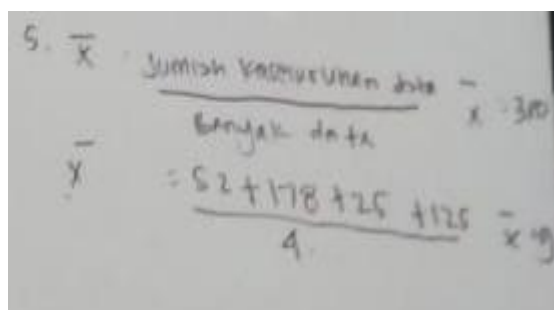 5. x̄ Jumlah keseluruhan data
Banyak data
x̄ = 52 + 178 + 25 + 125
4
x̄
x̄